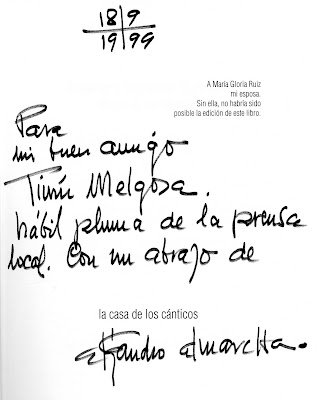 18|9
19|99
A María Gloria Ruiz
mi esposa.
Sin ella, no habría sido
posible la edición de este libro.
Para
mi buen amigo
Melgosa.
hábil pluma de la prensa
local. Con un abrazo de
la casa de los cánticos